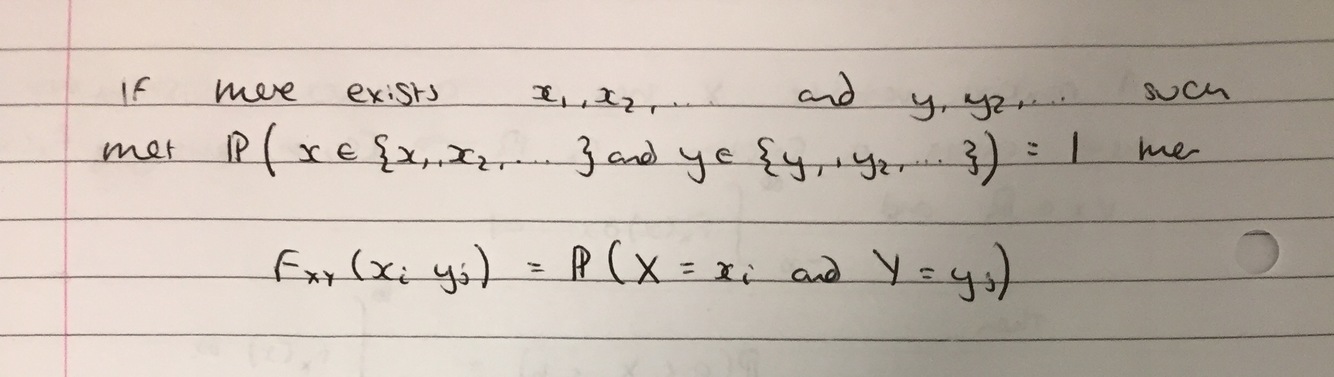 If there exists x₁, x₂, ... and y₁ y₂, ... such
that ℙ( x ∈ {x₁, x₂, ... } and y ∈ {y₁, y₂, ... }) = 1 then
F_XY (xᵢ yⱼ) = ℙ (X = xᵢ and Y = yⱼ)